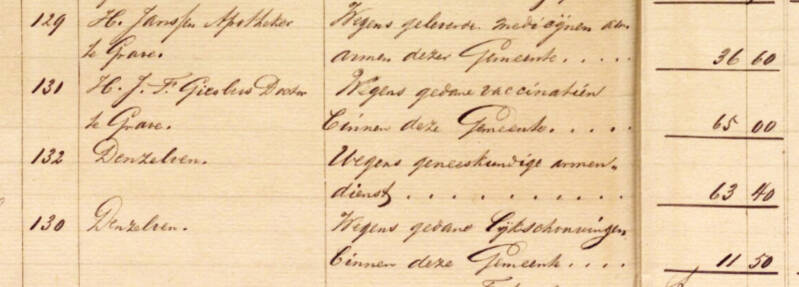 129 H. Janssen Apotheker Wegens geleverde medicijnen aan
te Grave. armen dezer Gemeente..... 36 60
131 H. J. F. Gierlius Doctor Wegens gedane vaccinatiën
te Grave. binnen deze Gemeente..... 65 00
132 Denzelven. Wegens geneeskundige armen-
dienst.......... 63 40
130 Denzelven. Wegens gedane lijkschouwingen
binnen deze Gemeente.... 11 50